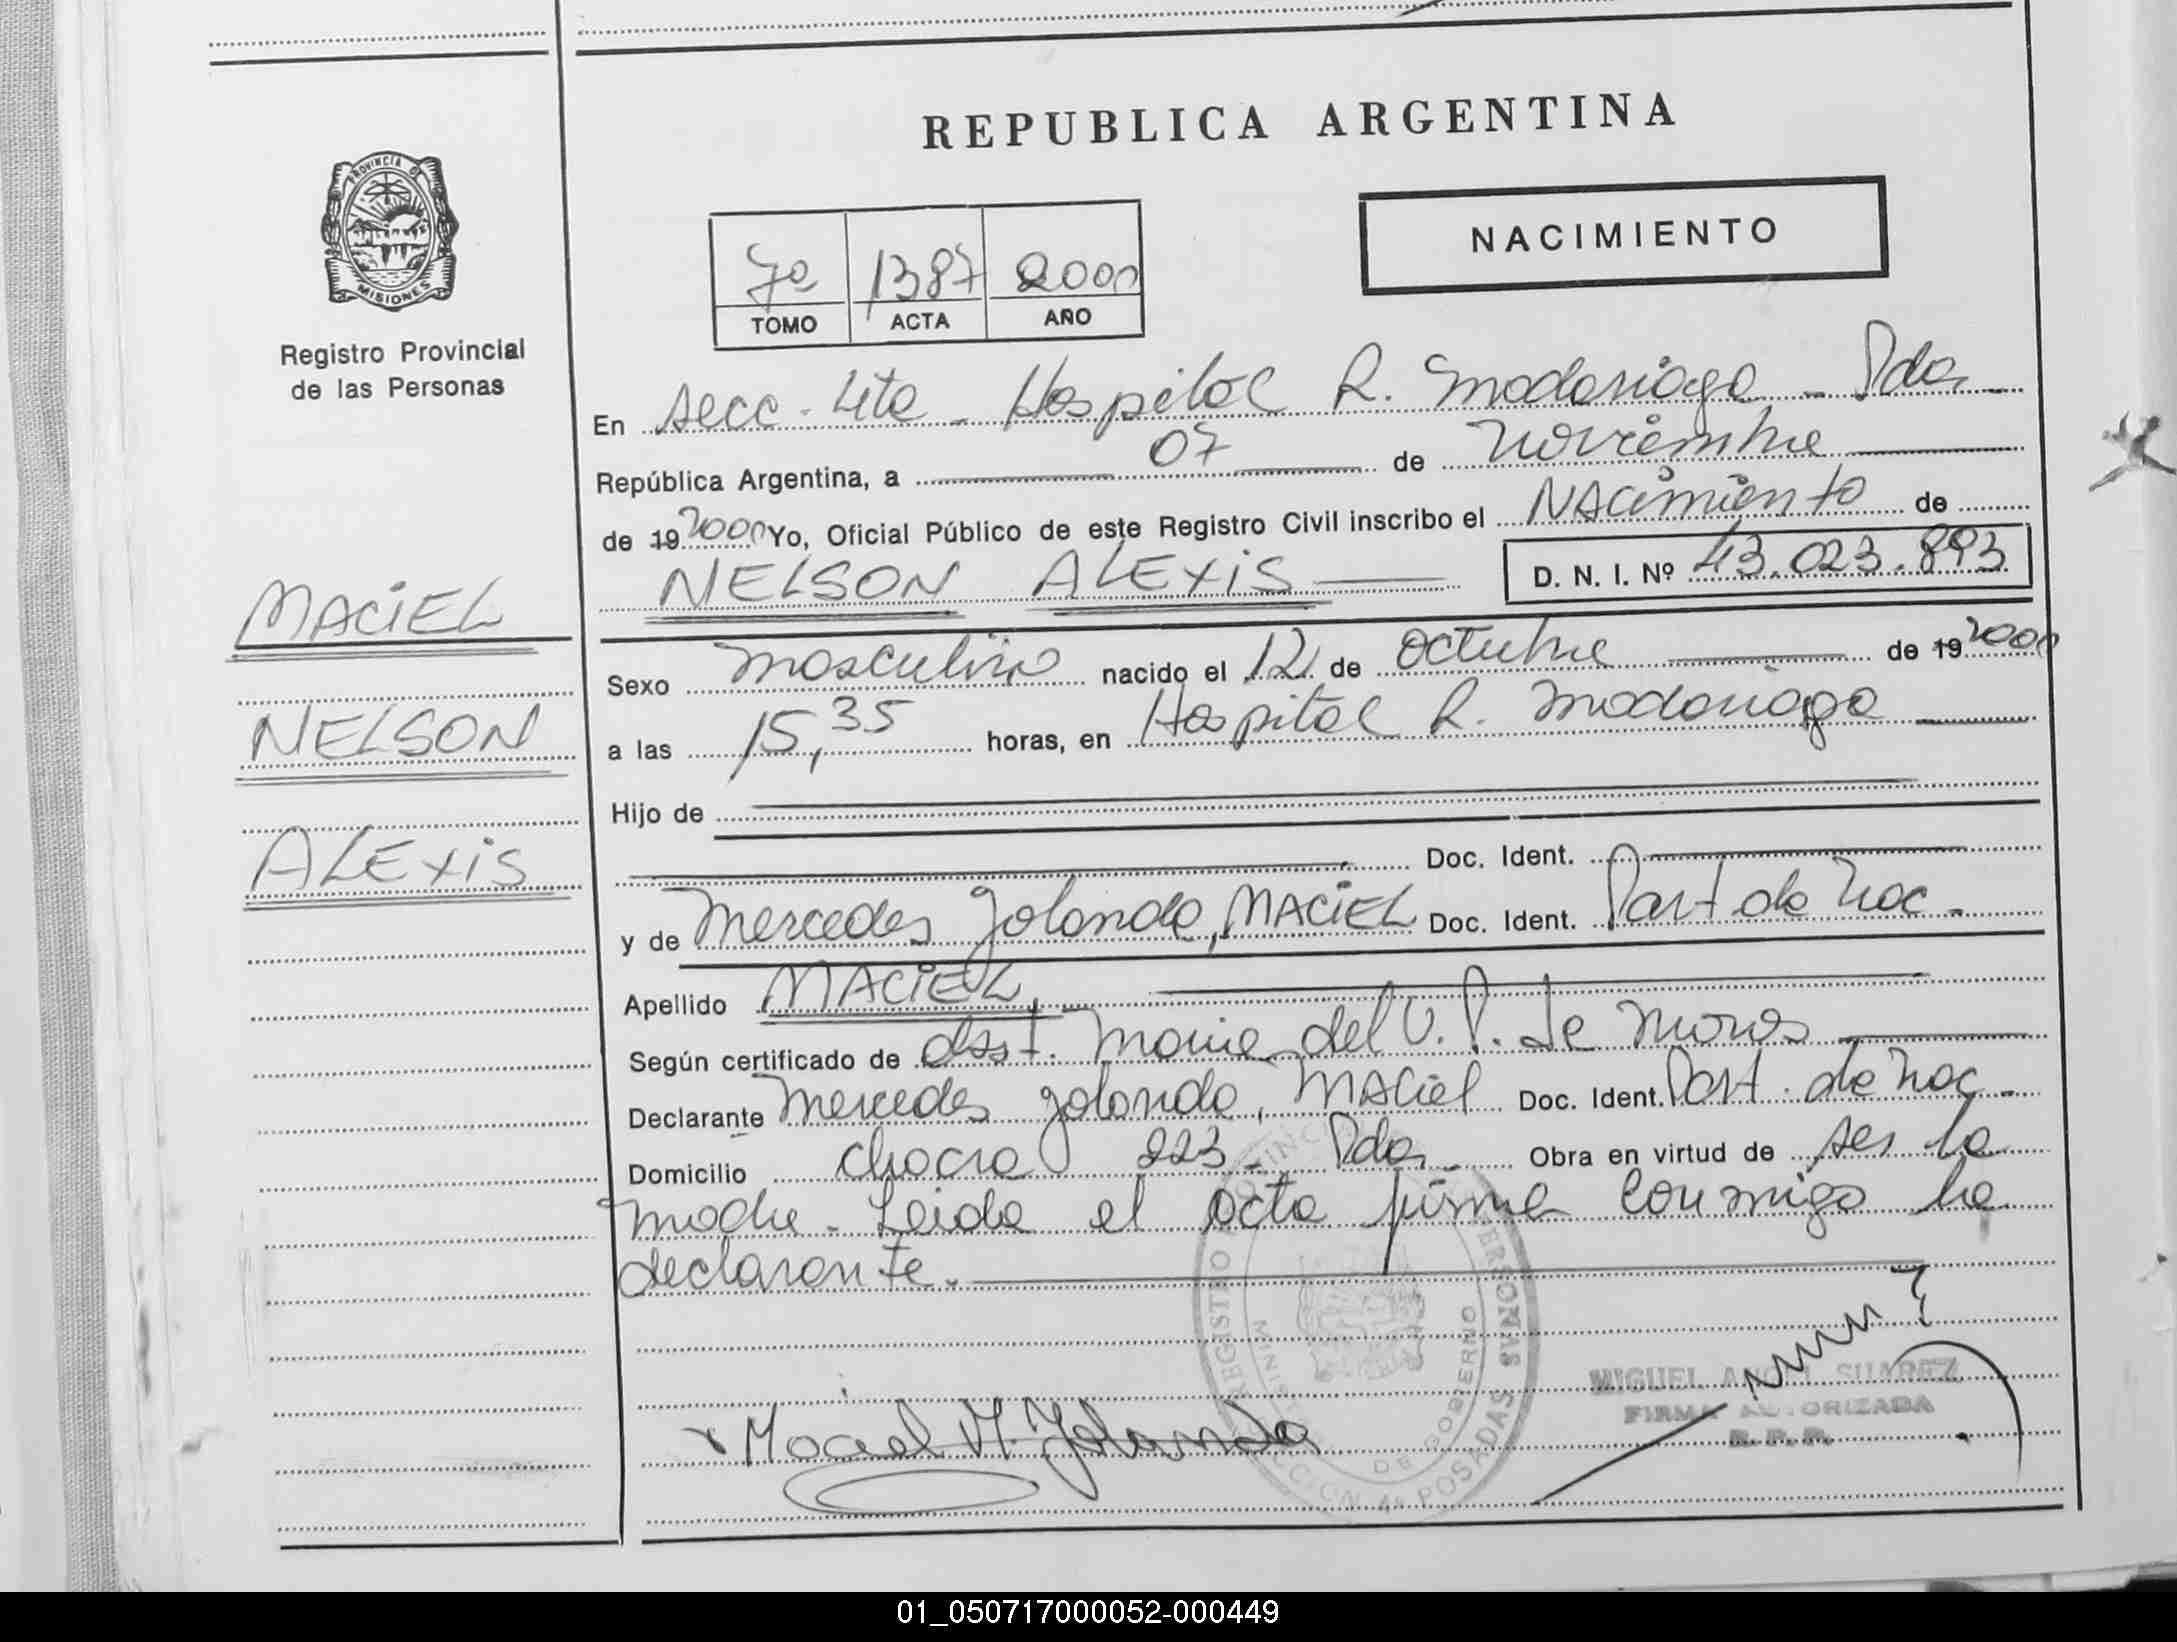 REPUBLICA ARGENTINA
PROVINCIA DE
MISIONES
Registro Provincial
de las Personas
NACIMIENTO
7º 1387 2000
TOMO ACTA AÑO
En secc. 4ta - Hospital R. Madariaga - Pdas -
República Argentina, a 07 de noviembre
de 19 2000 Yo, Oficial Público de este Registro Civil inscribo el NAcimiento de
NELSON ALEXIS D. N. I. Nº 43.023.893
MACIEL
NELSON
ALEXIS
Sexo masculino nacido el 12 de octubre de 19 2000
a las 15,35 horas, en Hospital R. Madariaga
Hijo de
Doc. Ident.
y de Mercedes Yolanda, MACIEL Doc. Ident. Part de nac.
Apellido MACIEL,
Según certificado de obst. Maria del V. P. de Moros
Declarante Mercedes Yolanda, MACiel Doc. Ident. Part. de nac.
Domicilio chacra 223 - Pdas. Obra en virtud de ser la
madre - Leida el acta firma conmigo la
declarante.
REGISTRO PROVINCIAL PERSONAS
MINIST DE GOBIERNO
SECCION 4ª POSADAS
Maciel M. Yolanda
MIGUEL ANGEL SUAREZ
FIRMA AUTORIZADA
R. P. P.
01_050717000052-000449